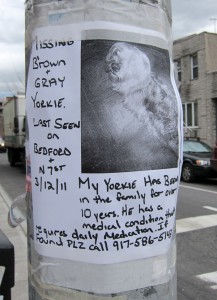 MISSING
Brown
+
GRAY
YORKIE.
LAST SEEN
ON
BEDFORD
+
N 7 ST
3/12/11
My YORKIE HAS BEEN
in the family for over
10 years. He has a
medical condition that
requires daily Medication. If
Found PLZ call 917-586-5145